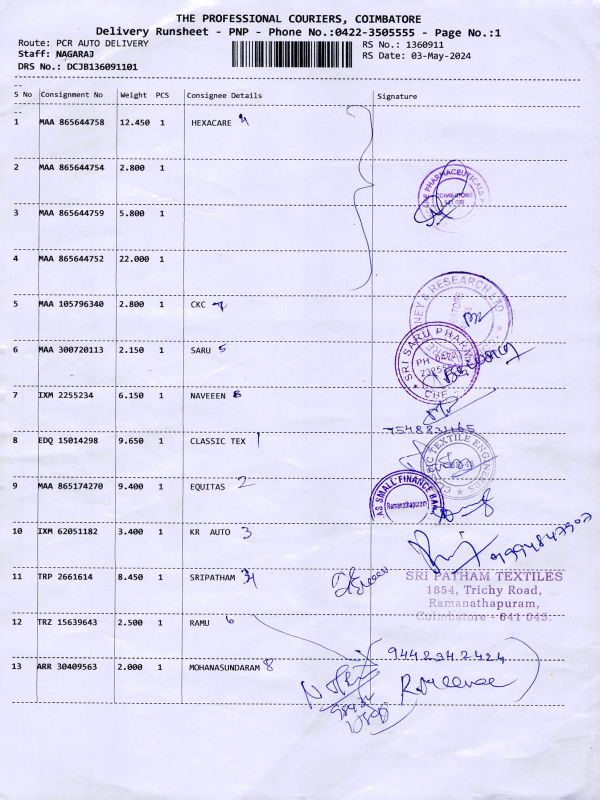 THE PROFESSIONAL COURIERS, COIMBATORE
Delivery Runsheet - PNP - Phone No.:0422-3505555 - Page No.:1
Route: PCR AUTO DELIVERY
RS No.: 1360911
Staff: NAGARAJ
RS Date: 03-May-2024
DRS No.: DCJB136091101
S No Consignment No Weight PCS Consignee Details Signature
1 MAA 865644758 12.450 1 HEXACARE 4
2 MAA 865644754 2.800 1
PHARMACEUTICALS
3 MAA 865644759 5.800 1
4 MAA 865644752 22.000 1
NEY & RESEARCH LTD
5 MAA 105796340 2.800 1 CKC 7
6 MAA 300720113 2.150 1 SARU 5
SRI SARU PHARMA
PH: 0422
7 IXM 2255234 6.150 1 NAVEEEN 6
7548831165
8 EDQ 15014298 9.650 1 CLASSIC TEX 1
TEXTILE ENGINEERS
9 MAA 865174270 9.400 1 EQUITAS 2
AS SMALL FINANCE BANK
Ramanathapuram
10 IXM 62051182 3.400 1 KR AUTO 3
11 TRP 2661614 8.450 1 SRIPATHAM
SRI PATHAM TEXTILES
1854, Trichy Road,
Ramanathapuram,
Coimbatore - 641 045.
12 TRZ 15639643 2.500 1 RAMU 6
9442342424
13 ARR 30409563 2.000 1 MOHANASUNDARAM 8